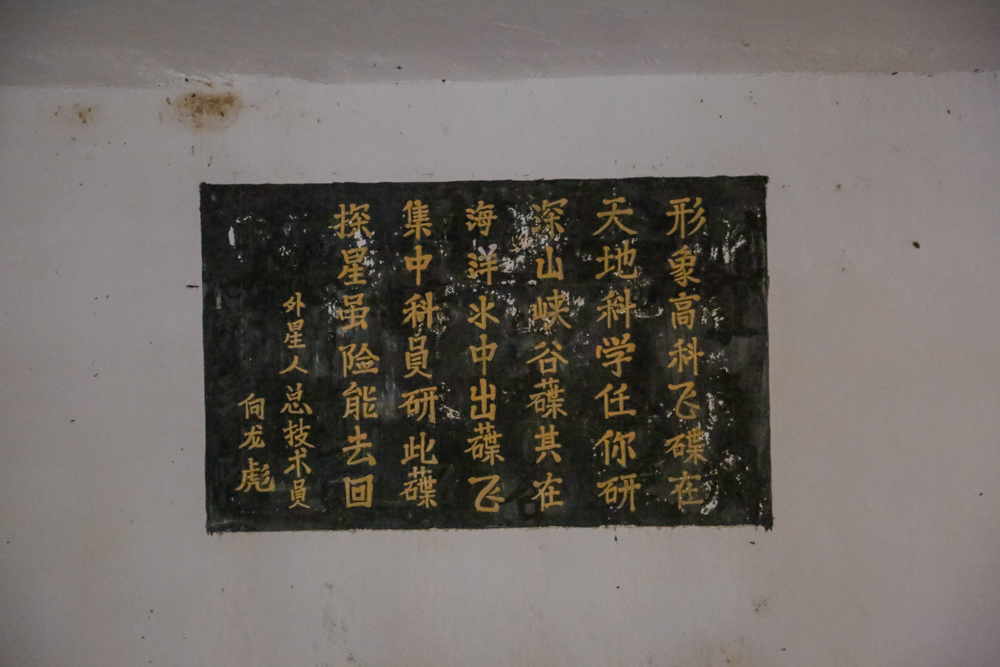 形象高科飞碟在
天地科学任你研
深山峡谷蕸其在
海洋水中出蕸飞
集中科員研此蕸
探星虽险能去回
外星人总技术員
向龙彪